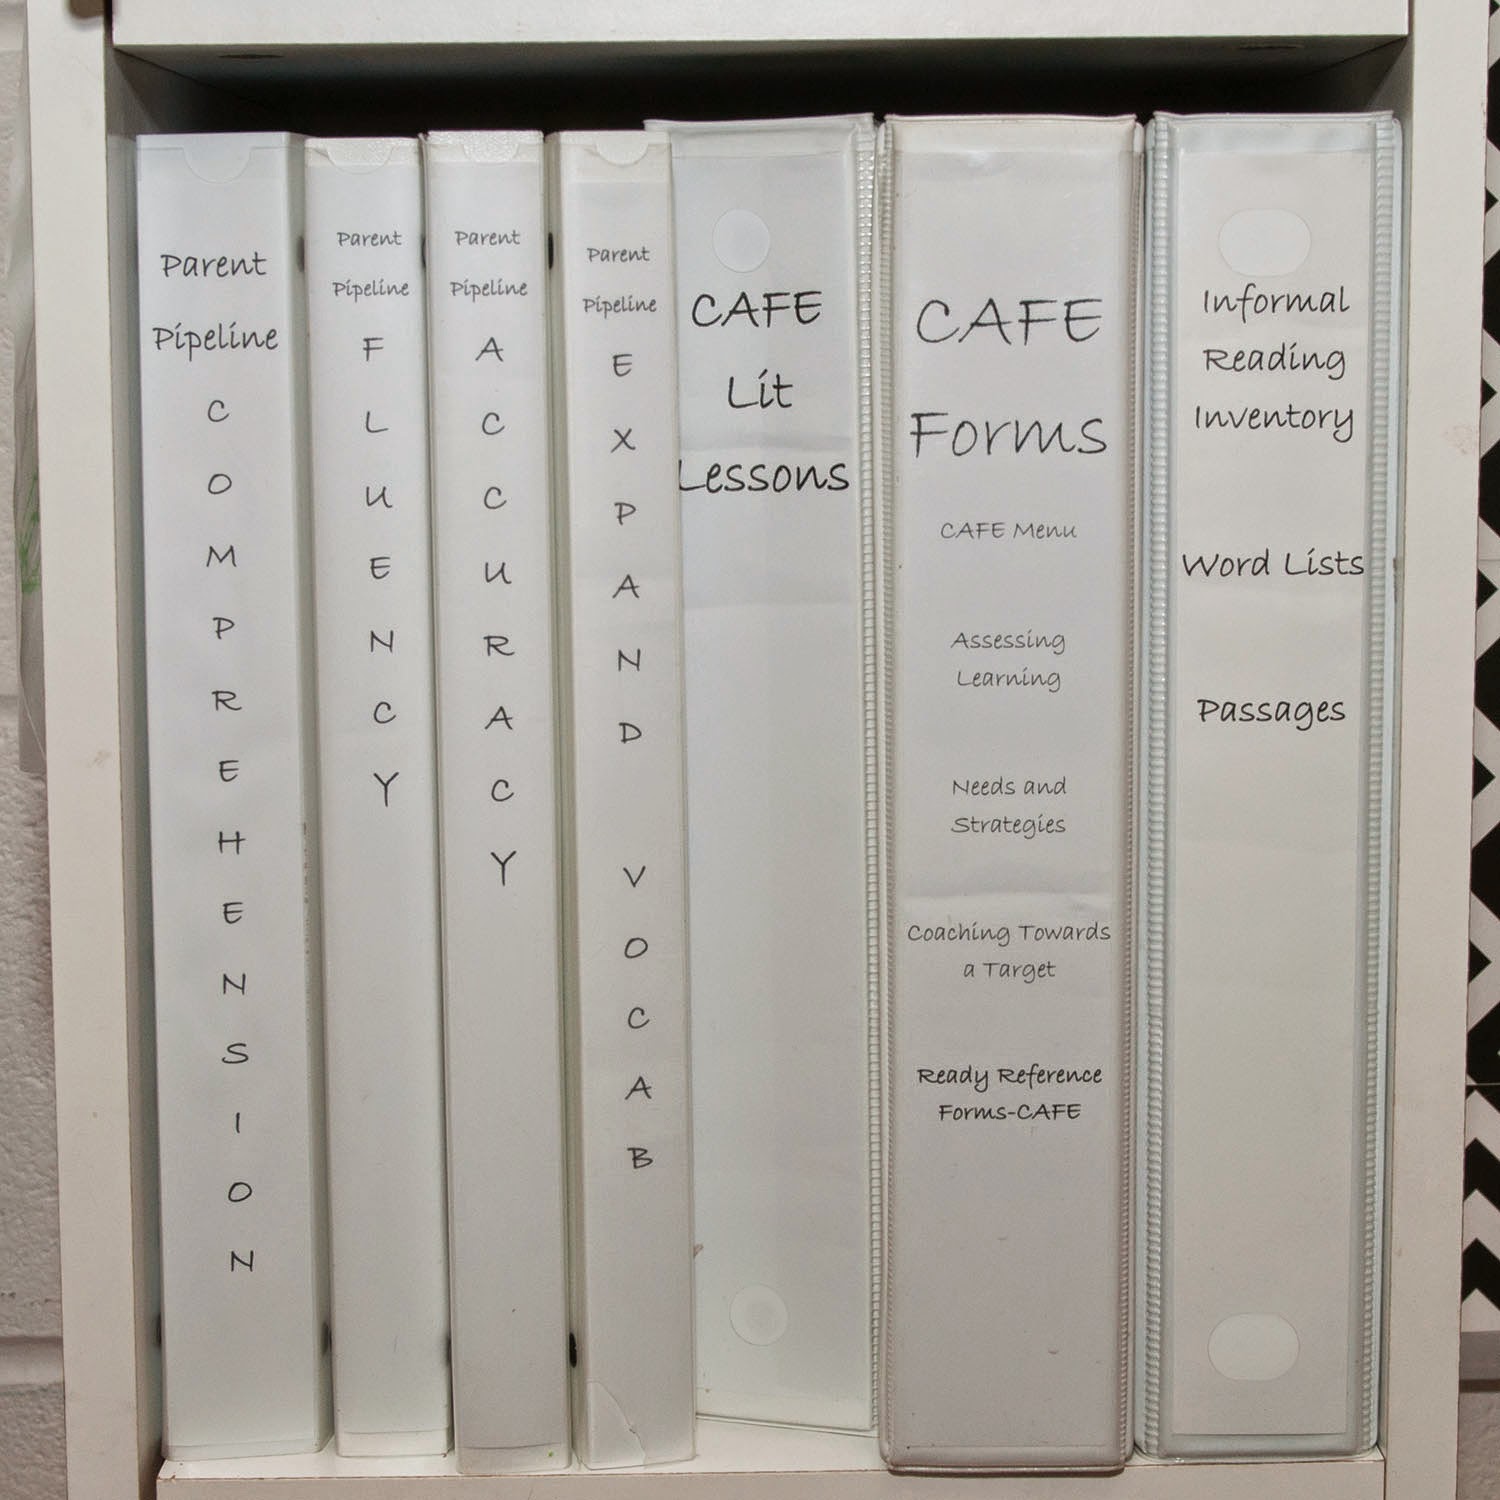 Parent
Pipeline
C
O
M
P
R
E
H
E
N
S
I
O
N
Parent
Pipeline
F
L
U
E
N
C
Y
Parent
Pipeline
A
C
C
U
R
A
C
Y
Parent
Pipeline
E
X
P
A
N
D
V
O
C
A
B
CAFE
Lit
Lessons
CAFE
Forms
CAFE Menu
Assessing
Learning
Needs and
Strategies
Coaching Towards
a Target
Ready Reference
Forms-CAFE
Informal
Reading
Inventory
Word Lists
Passages